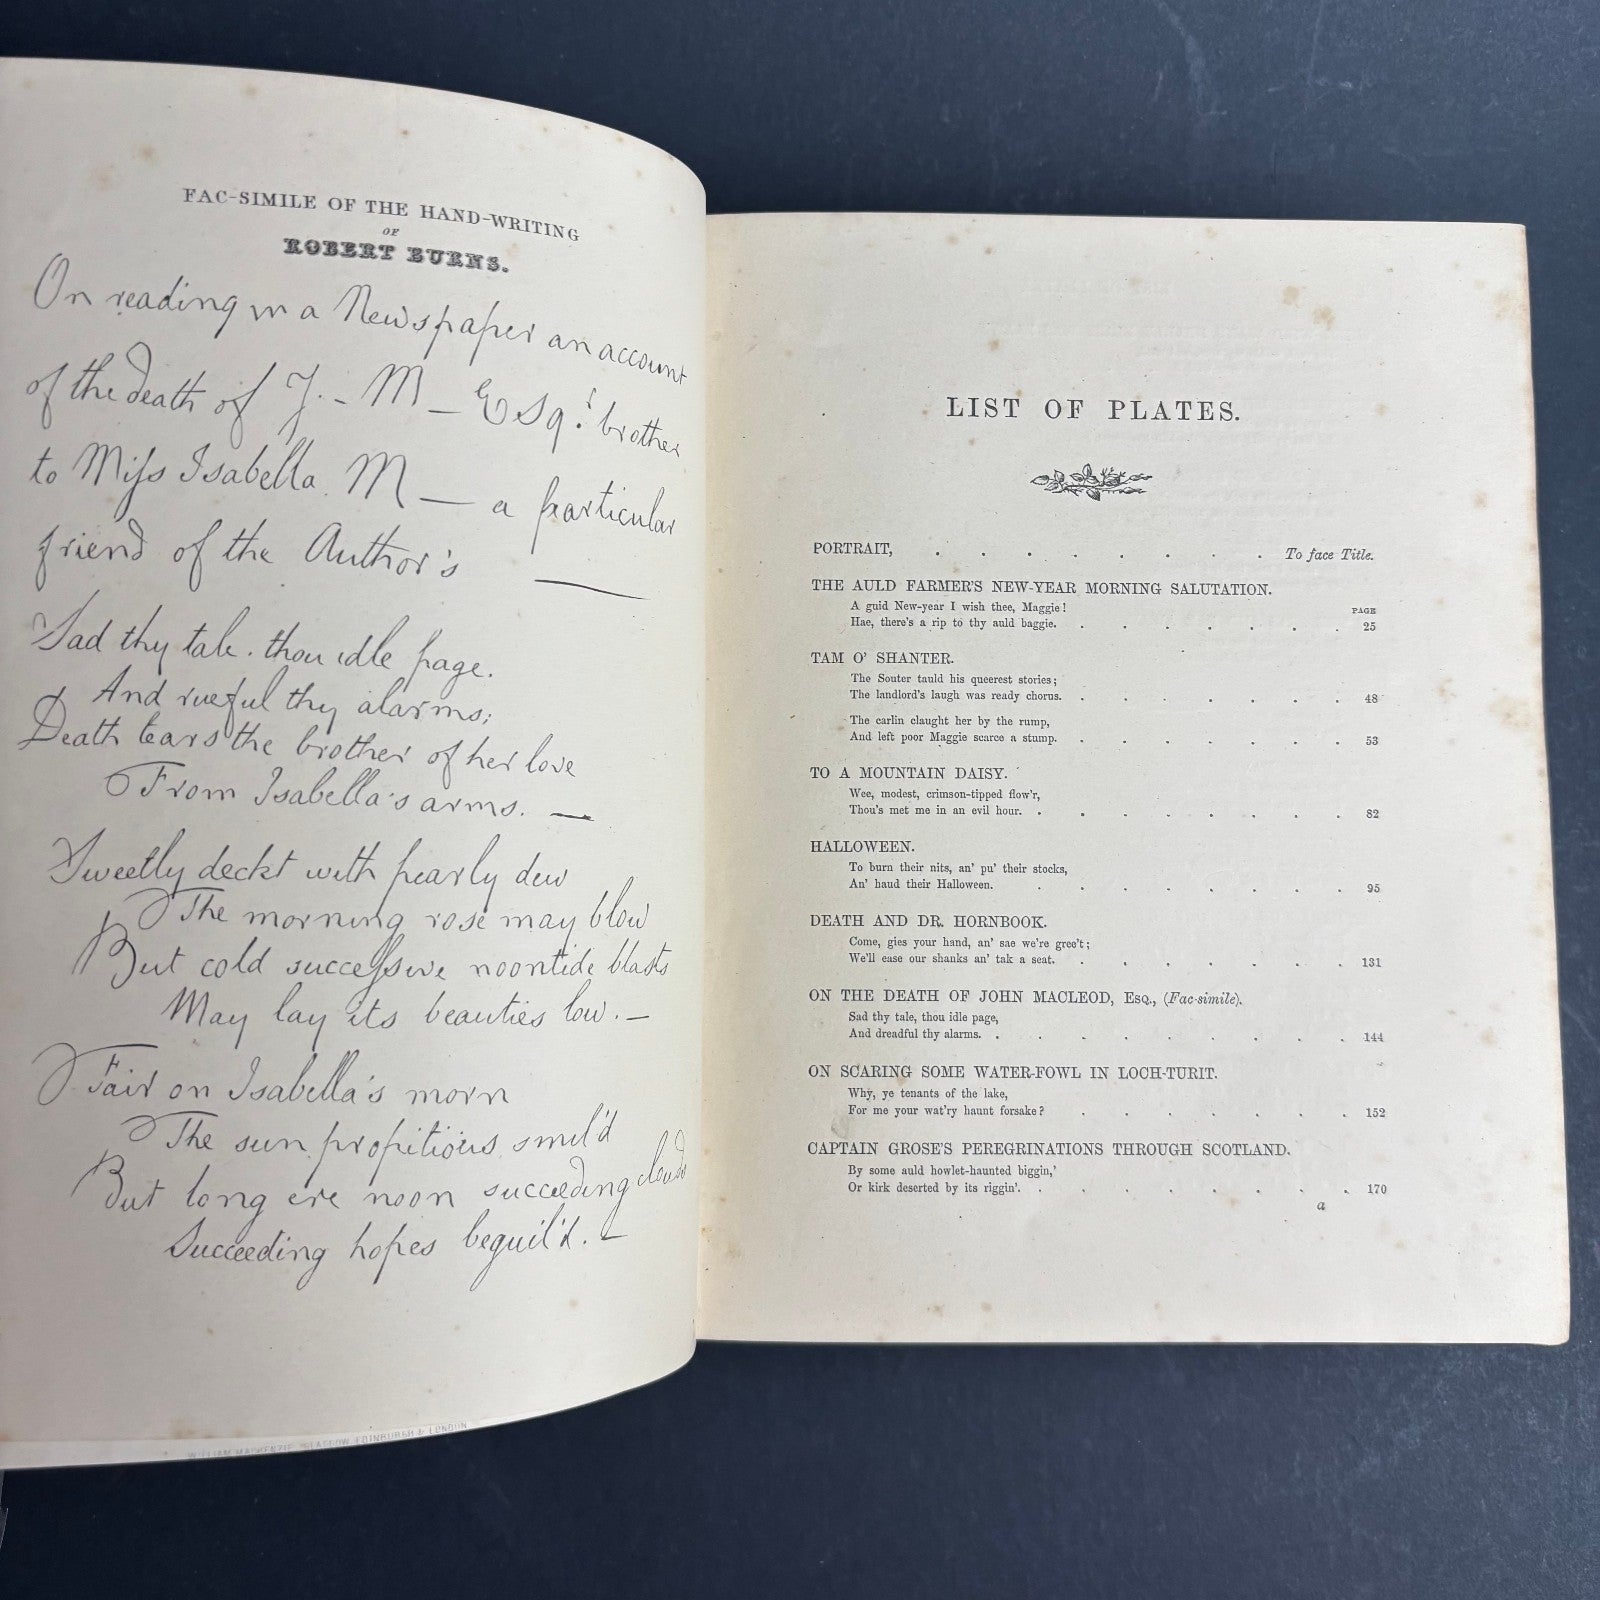 FAC-SIMILE OF THE HAND-WRITING
OF
ROBERT BURNS.
On reading in a Newspaper an account
of the death of J. – M – Esqr. brother
to Miss Isabella M — a particular
friend of the Author's —
Sad thy tale. thou idle page.
And rueful thy alarms;
Death tears the brother of her love
From Isabella's arms. —
Sweetly deckt with pearly dew
The morning rose may blow
But cold successive noontide blasts
May lay its beauties low. —
Fair on Isabella's morn
The sun propitious smil'd
But long ere noon succeeding clouds
Succeeding hopes beguil'd. –
WILLIAM MACKENZIE, GLASGOW, EDINBURGH & LONDON
LIST OF PLATES.
PORTRAIT, . . . . . . . . To face Title.
THE AULD FARMER'S NEW-YEAR MORNING SALUTATION.
A guid New-year I wish thee, Maggie! PAGE
Hae, there's a rip to thy auld baggie. . . . . . . . 25
TAM O' SHANTER.
The Souter tauld his queerest stories;
The landlord's laugh was ready chorus. . . . . . . . 48
The carlin claught her by the rump,
And left poor Maggie scarce a stump. . . . . . . . 53
TO A MOUNTAIN DAISY.
Wee, modest, crimson-tipped flow'r,
Thou's met me in an evil hour. . . . . . . . . 82
HALLOWEEN.
To burn their nits, an' pu' their stocks,
An' haud their Halloween. . . . . . . . . 95
DEATH AND DR. HORNBOOK.
Come, gies your hand, an' sae we're gree't;
We'll ease our shanks an' tak a seat. . . . . . . . 131
ON THE DEATH OF JOHN MACLEOD, ESQ., (Fac-simile).
Sad thy tale, thou idle page,
And dreadful thy alarms. . . . . . . . . . 144
ON SCARING SOME WATER-FOWL IN LOCH-TURIT.
Why, ye tenants of the lake,
For me your wat'ry haunt forsake? . . . . . . . 152
CAPTAIN GROSE'S PEREGRINATIONS THROUGH SCOTLAND.
By some auld howlet-haunted biggin,'
Or kirk deserted by its riggin'. . . . . . . . . 170
a